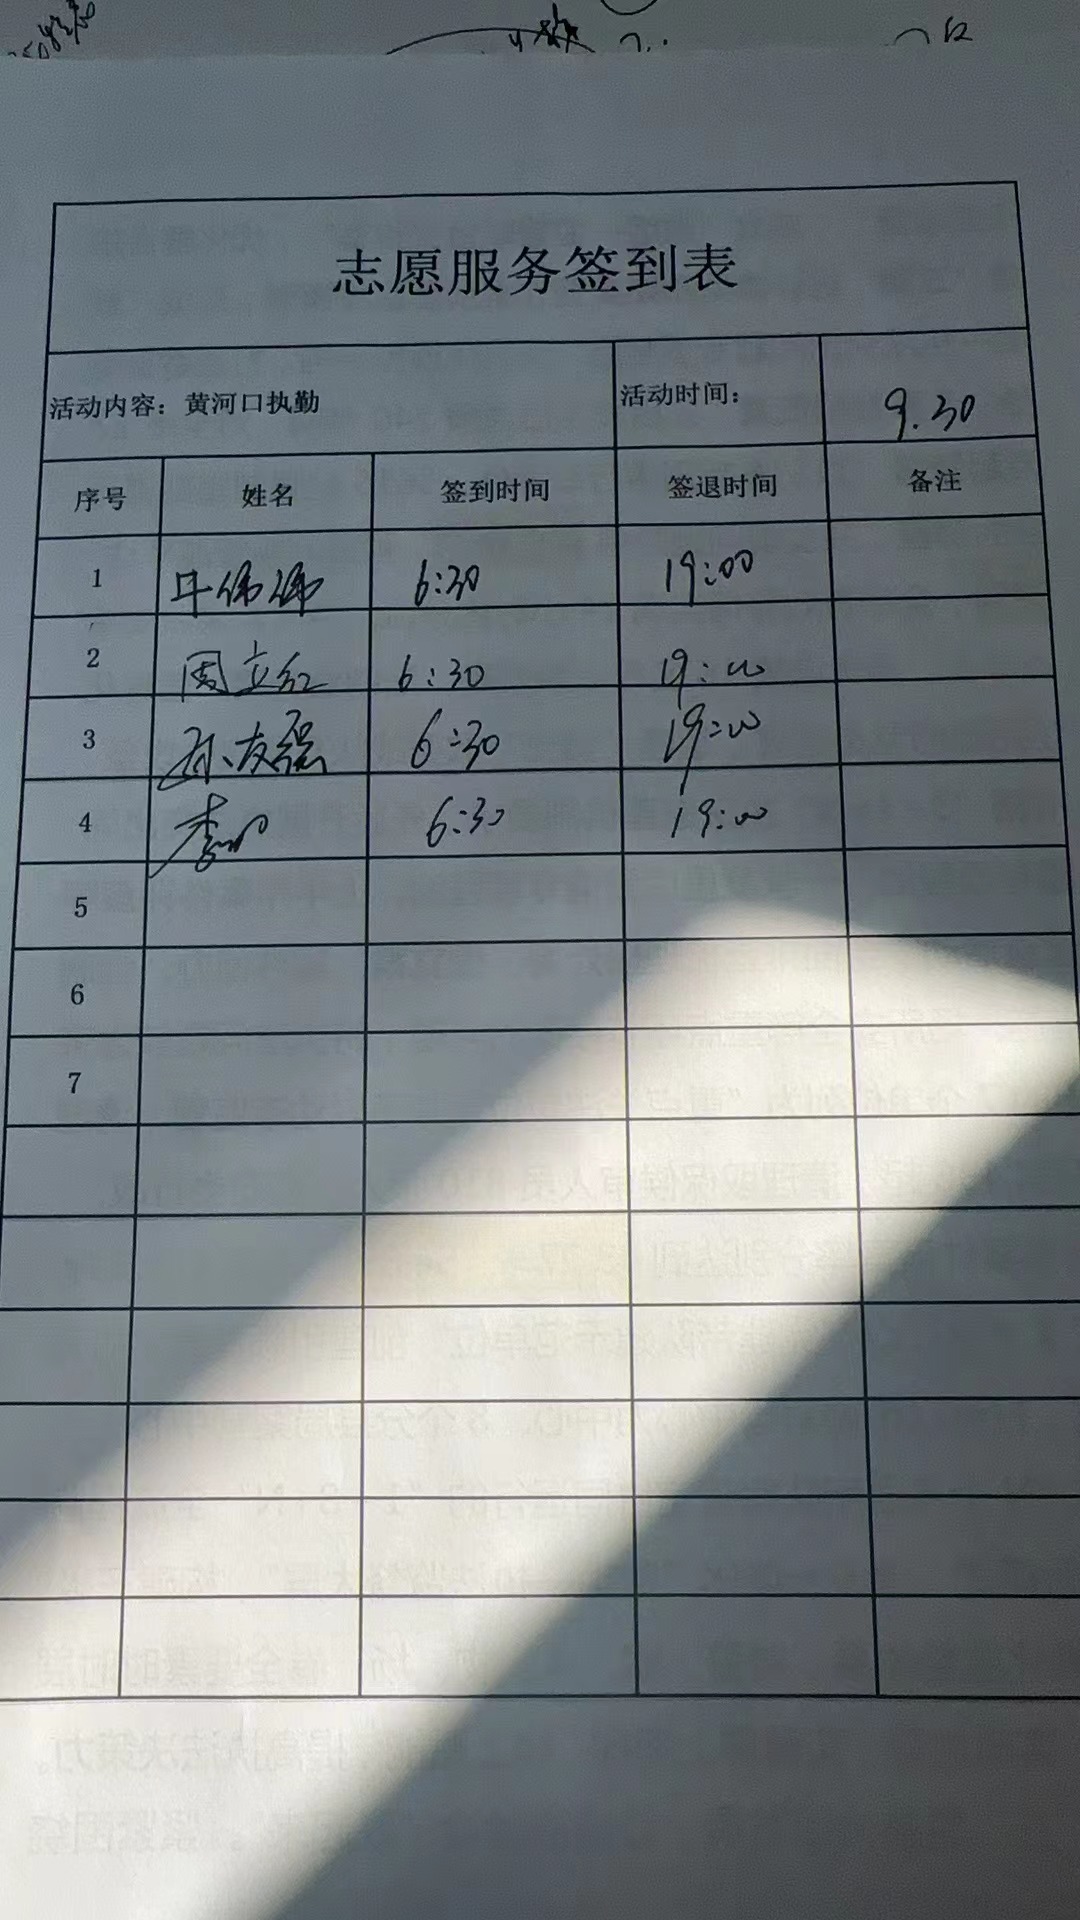 志愿服务签到表
活动内容：黄河口执勤 活动时间： 9.30
序号 姓名 签到时间 签退时间 备注
1 牛伟伟 6:30 19:00
2 周立红 6:30 19:00
3 孙友强 6:30 19:00
4 李 6:30 19:00
5
6
7